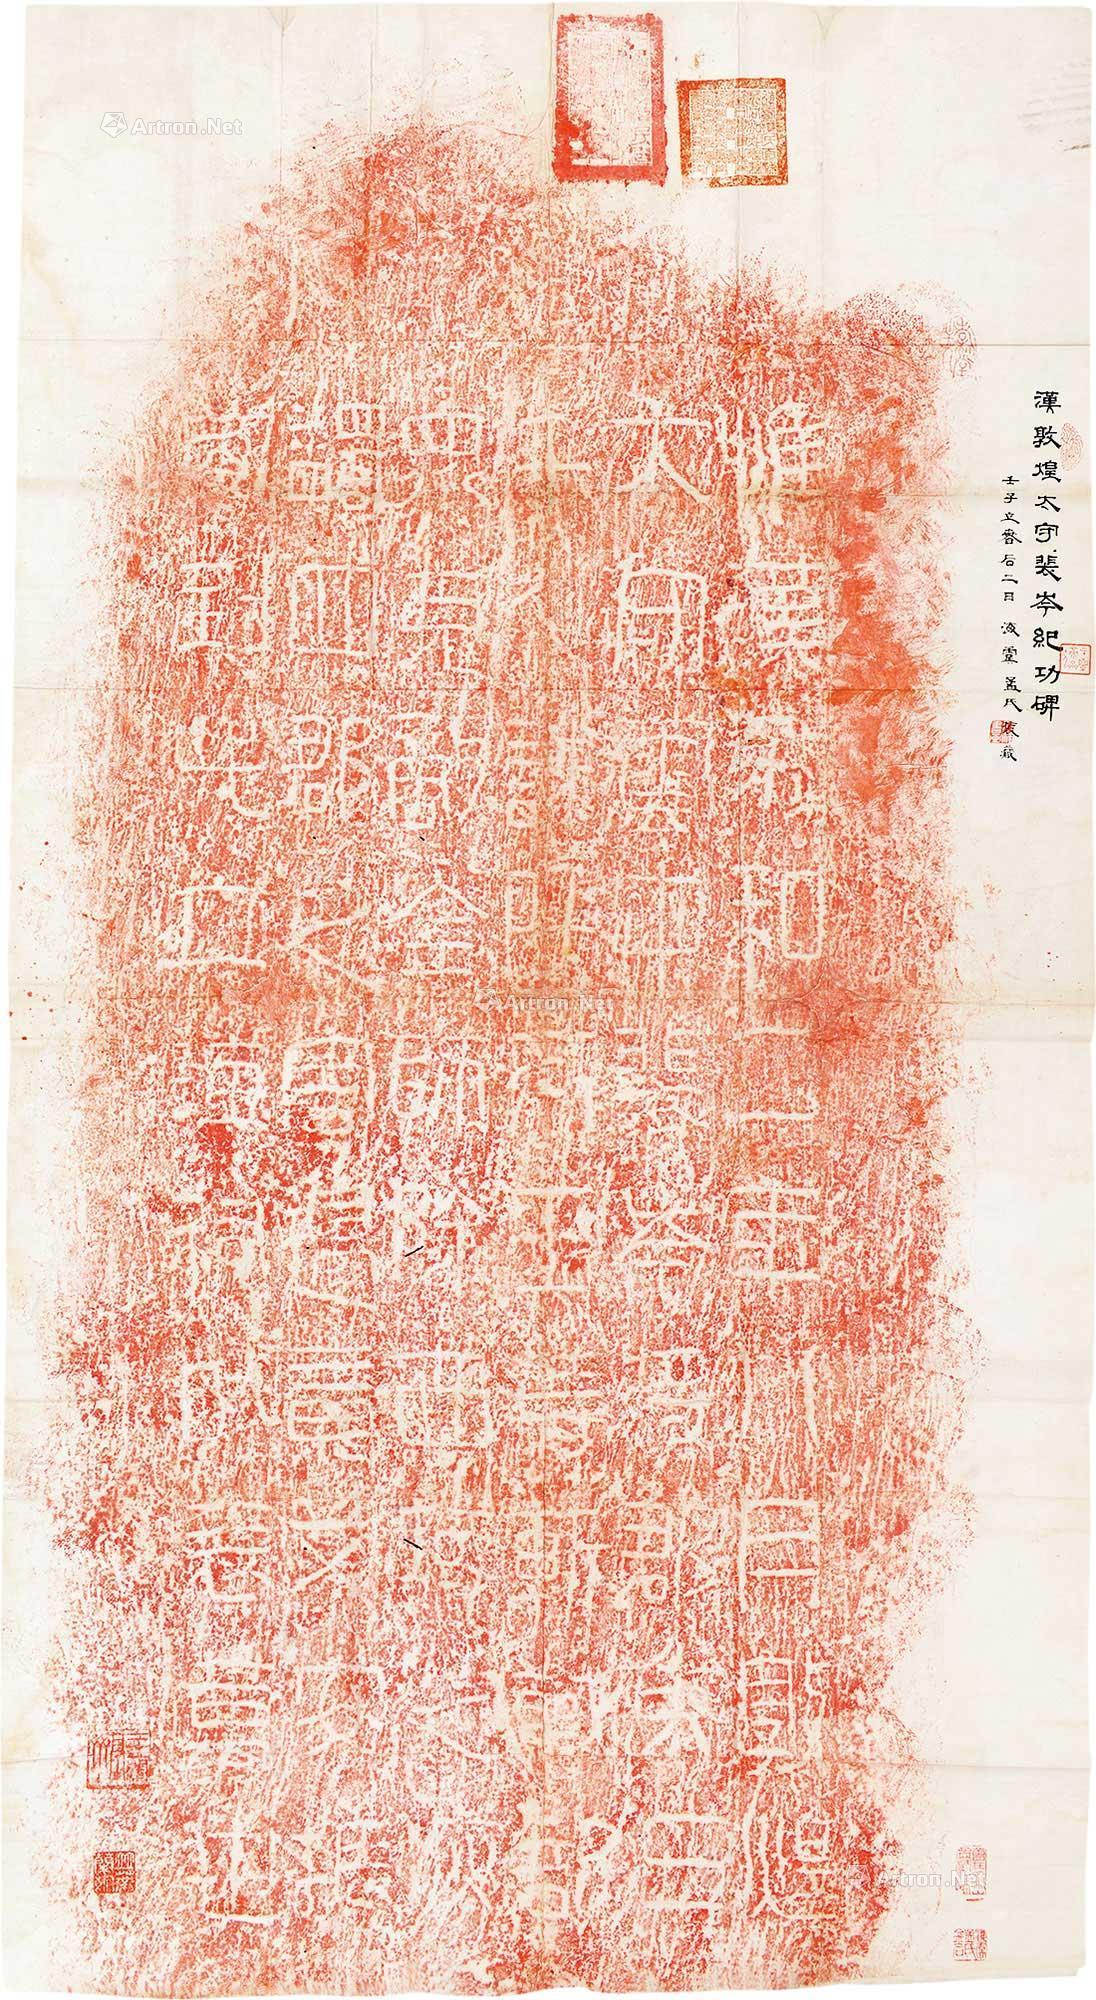 漢敦煌太守裴岑紀功碑
壬子立春后二日 凌霄氏裝藏
惟漢永和二年八月敦煌
大守雲中裴岑將郡兵三
千人誅呼衍王壽斬馘部
眾克敵全師除西域之疢
蠲四郡之害邊竟艾安振
威到此立海祠以表萬世
Artron.Net
Artron.Net
Artron.Net